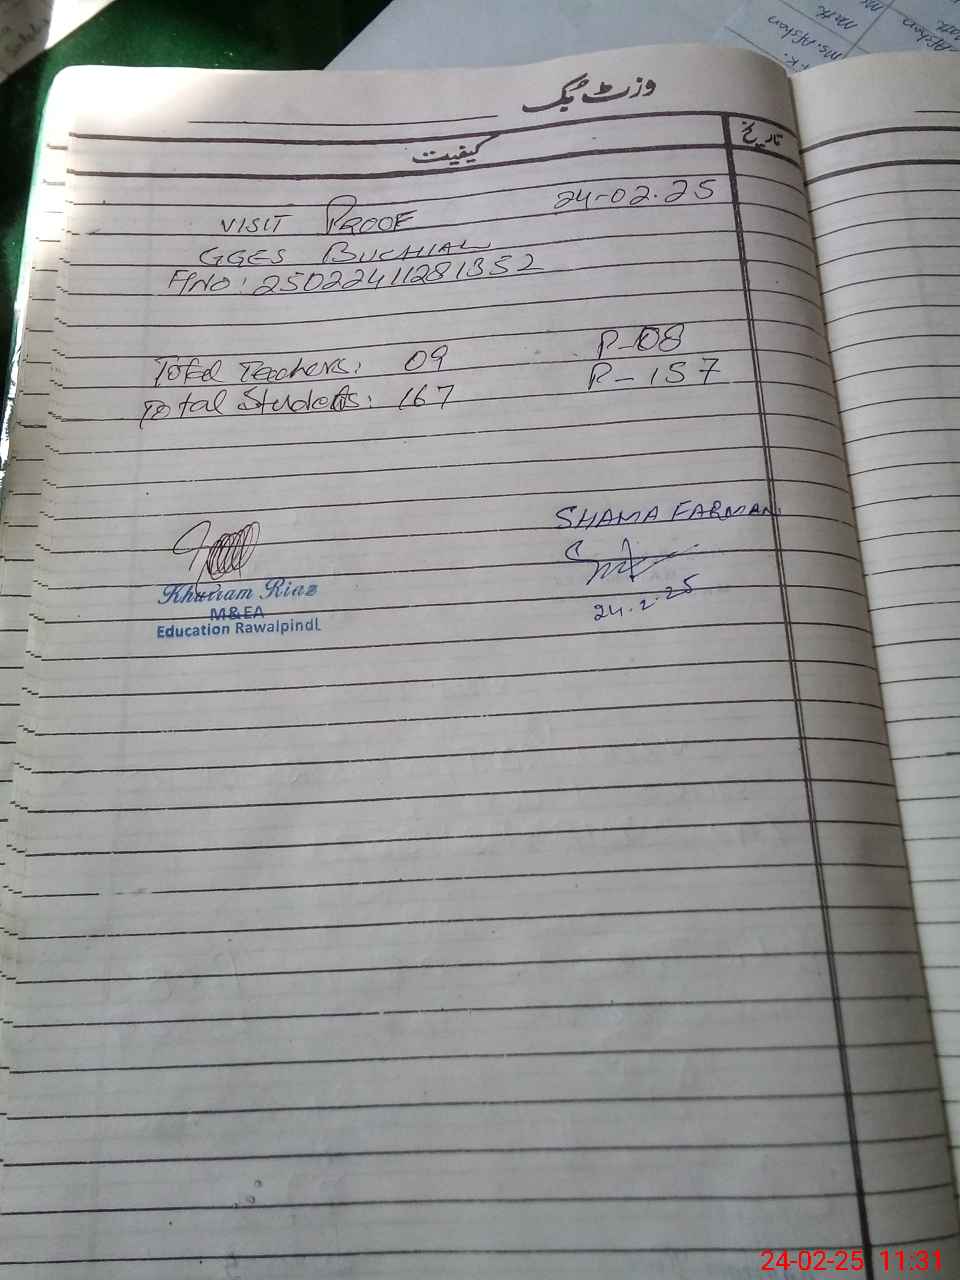 وزٹ بک
کیفیت
تاریخ
24-02.25
VISIT PROOF
GGES BUCHIAL
F/NO: 25022411281352
Total Teachers: 09 P-08
Total Students: 167 P-157
SHAMA FARMAN
24.2.25
Khurram Riaz
M&EA
Education Rawalpindi
Ms. Afshan
Math
Afshan
24-02-25 11:31